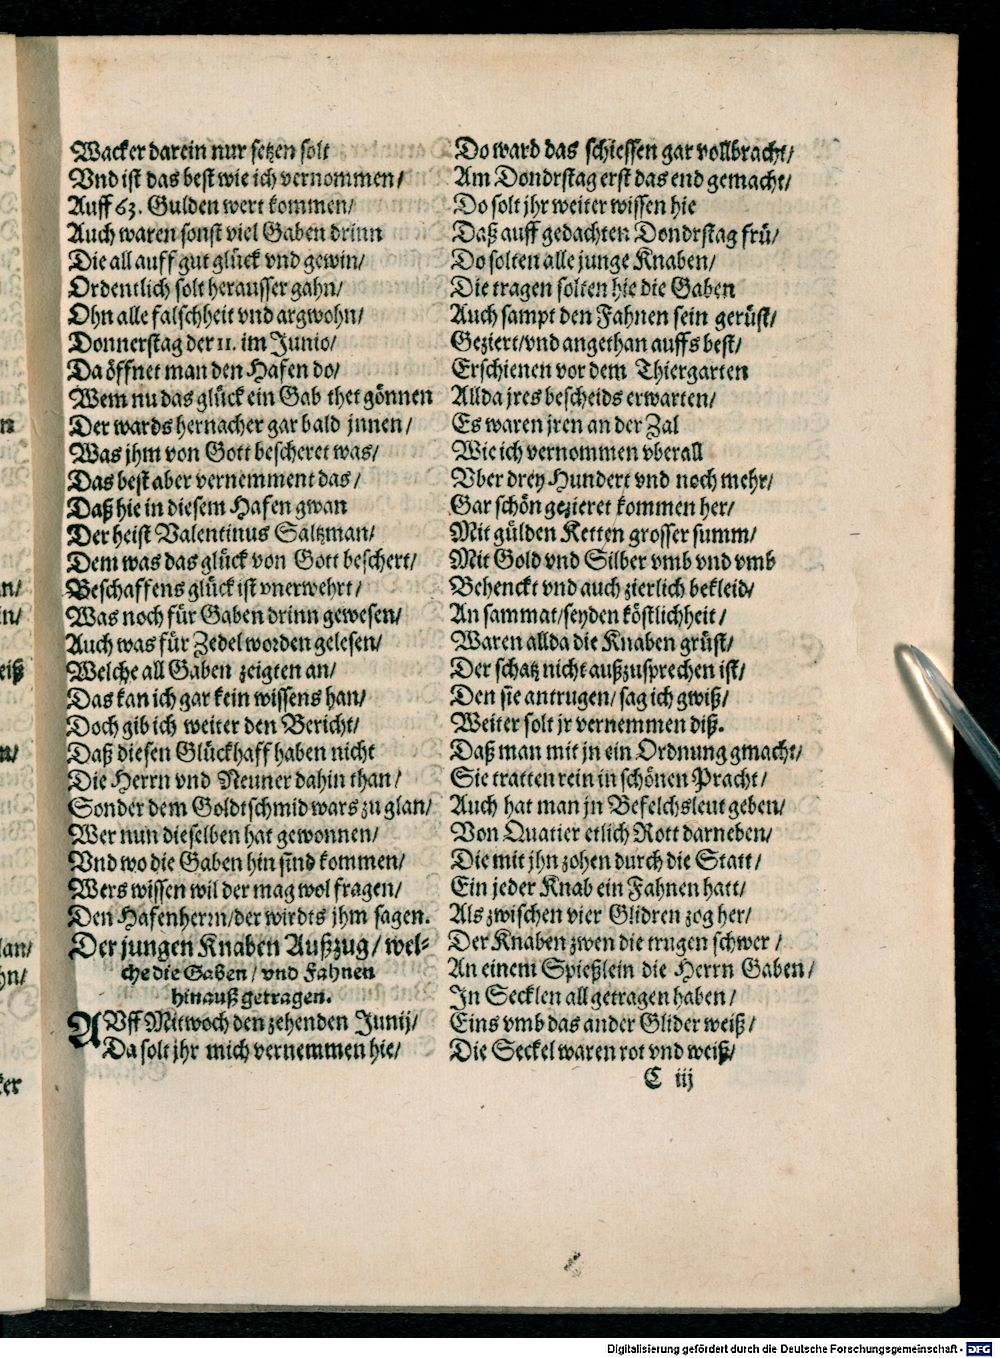 Wacker darein nur setzen solt
Vnd ist das best wie ich vernommen/
Auff 63. Gulden wert kommen/
Auch waren sonst viel Gaben drinn
Die all auff gut glück vnd gewin/
Ordentlich solt herausser gahn/
Ohn alle falschheit vnd argwohn/
Donnerstag der 11. im Junio/
Da öffnet man den Hafen do/
Wem nu das glück ein Gab thet gönnen
Der wards hernacher gar bald jnnen/
Was jhm von Gott bescheret was/
Das best aber vernemment das/
Daß hie in diesem Hafen gwan
Der heist Valentinus Saltzman/
Dem was das glück von Gott beschert/
Beschaffens glück ist vnerwehrt/
Was noch für Gaben drinn gewesen/
Auch was für Zedel worden gelesen/
Welche all Gaben zeigten an/
Das kan ich gar kein wissens han/
Doch gib ich weiter den Bericht/
Daß diesen Glückhaff haben nicht
Die Herrn vnd Neuner dahin than/
Sonder dem Goldtschmid wars zu glan/
Wer nun dieselben hat gewonnen/
Vnd wo die Gaben hin sind kommen/
Wers wissen wil der mag wol fragen/
Den Hafenherrn/der wirdts jhm sagen.
Der jungen Knaben Außzug/ wel-
che die Gaben/ vnd Fahnen
hinauß getragen.
AVff Mitwoch den zehenden Junij/
Da solt jhr mich vernemmen hie/
Do ward das schiessen gar vollbracht/
Am Dondrstag erst das end gemacht/
Do solt jhr weiter wissen hie
Daß auff gedachten Dondrstag frü/
Do solten alle junge Knaben/
Die tragen solten hie die Gaben
Auch sampt den Fahnen sein gerüst/
Geziert/vnd angethan auffs best/
Erschienen vor dem Thiergarten
Allda jres bescheids erwarten/
Es waren jren an der Zal
Wie ich vernommen vberall
Vber drey Hundert vnd noch mehr/
Gar schön gezieret kommen her/
Mit gülden Ketten grosser summ/
Mit Gold vnd Silber vmb vnd vmb
Behenckt vnd auch zierlich bekleid/
An sammat/seyden köstlichheit/
Waren allda die Knaben grüst/
Der schatz nicht außzusprechen ist/
Den sie antrugen/ sag ich gwiß/
Weiter solt jr vernemmen diß.
Daß man mit jn ein Ordnung gmacht/
Sie tratten rein in schönen Pracht/
Auch hat man jn Befelchsleut geben/
Von Quatier etlich Rott darneben/
Die mit jhn zohen durch die Statt/
Ein jeder Knab ein Fahnen hatt/
Als zwischen vier Glidren zog her/
Der Knaben zwen die trugen schwer/
An einem Spießlein die Herrn Gaben/
In Secklen all getragen haben/
Eins vmb das ander Glider weiß/
Die Seckel waren rot vnd weiß/
C iij
Digitalisierung gefördert durch die Deutsche Forschungsgemeinschaft - DFG